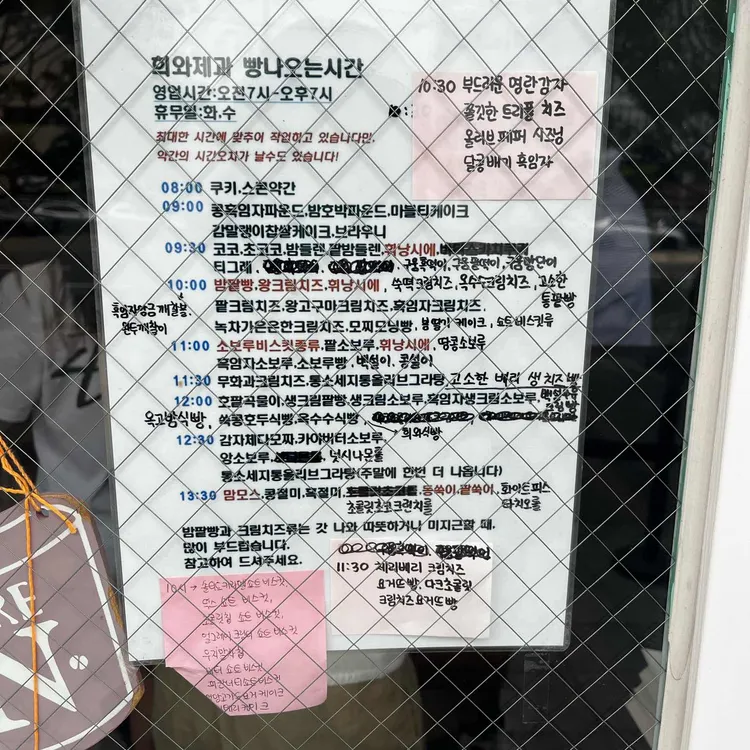 희와제과 빵나오는시간
영업시간:오전7시-오후7시
휴무일:화.수
최대한 시간에 맞추어 작업하고 있습니다만,
약간의 시간오차가 날수도 있습니다!
10:30 부드러운 명란감자
쫄깃한 트리플 치즈
올리브 페퍼 시즈닝
달콩배기 흑임자
08:00 쿠키.스콘약간
09:00 콩흑임자파운드.밤호박파운드.마들티케이크
감말랭이찹쌀케이크.브라우니
09:30 코코.초코코.밤들렌.팥밤들렌.휘낭시에.
티그레. 구움쑥떡이, 구움팥떡이, 구움밤단이
10:00 밤팥빵.왕크림치즈.휘낭시에, 쑥떡크림치즈, 옥수수크림치즈, 고소한
통팥빵
팥크림치즈.왕고구마크림치즈.흑임자크림치즈.
흑임자앙금깨찰빵,
완두깨찰이
녹차가은은한크림치즈.모찌모닝빵, 볼딸기 케이크, 쇼트비스킷류
11:00 소보루비스킷종류.팥소보루.휘낭시에, 땅콩소보루
흑임자소보루.소보루빵, 벗설이, 콩설이
11:30 무화과크림치즈.통소세지통올리브그라탕, 고소한 베리 생치즈빵
12:00 호팥곡물이.생크림팥빵.생크림소보루.흑임자생크림소보루,
옥고밤식빵, 쑥콩호두식빵.옥수수식빵,
희와식빵
12:30 감자체다모짜.카야버터소보루.
앙소보루. 넛시나몬롤
통소세지통올리브그라탕(주말에 한번 더 나옵니다)
13:30 맘모스.콩절미.흑절미. 동쑥이.팥쑥이, 화이트피스
타치오롤
초콜릿초코크런치롤
밤팥빵과 크림치즈류는 갓 나와 따뜻하거나 미지근할 때,
많이 부드럽습니다.
참고하여 드셔주세요.
11:30 체리베리 크림치즈
요거뜨빵, 다크초콜릿
크림치즈요거뜨빵
10시 → 솔티드카라멜쇼트비스킷
쇼트 비스킷,
얼그레이 쿠키 쇼트 비스킷
무지말차칩
쇼트 비스킷